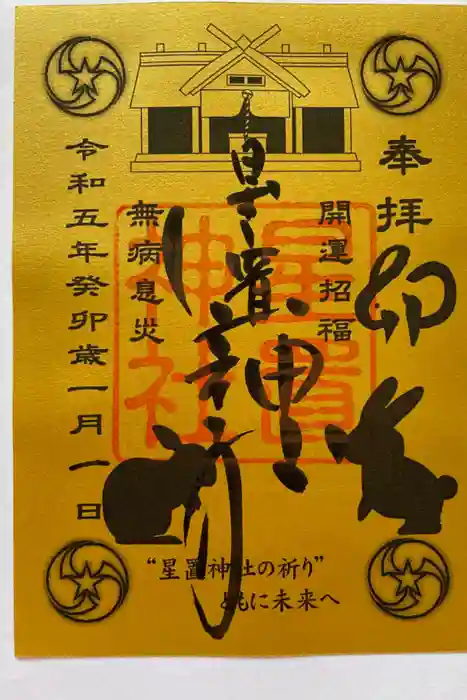 奉拝
卯
開運招福
星置神社
星置神社
無病息災
令和五年癸卯歳一月一日
“星置神社の祈り”
ともに未来へ